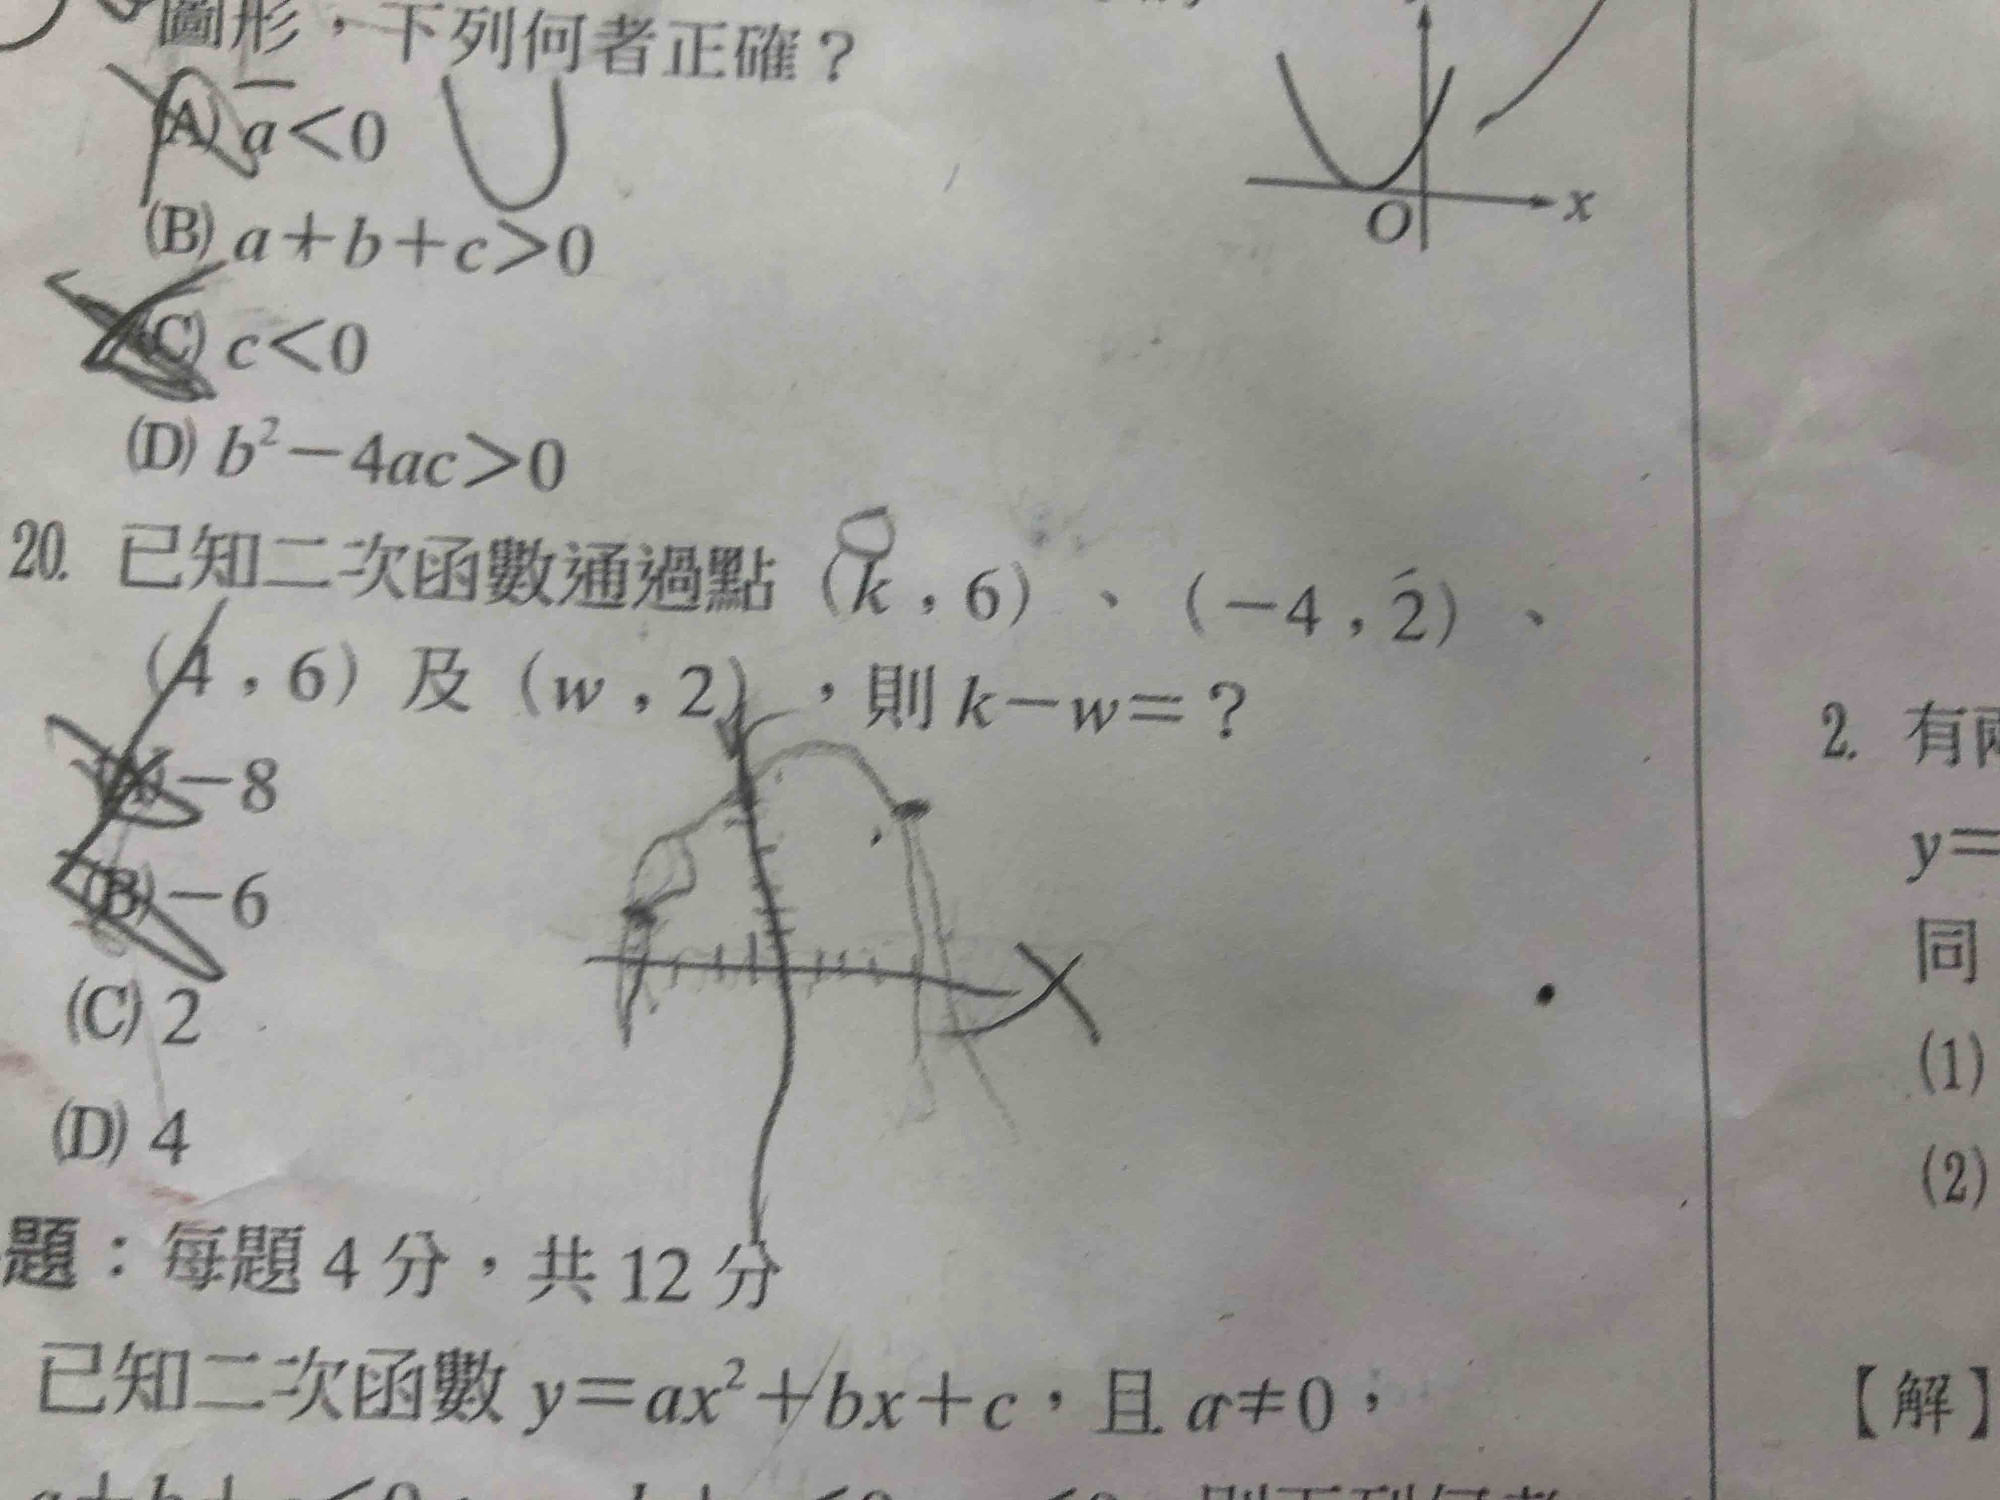 圖形，下列何者正確？
(A) a<0
(B) a+b+c>0
(C) c<0
(D) b²−4ac>0
O
x
20. 已知二次函數通過點（k，6）、（−4，2）、
（4，6）及（w，2），則 k−w=？
(A) −8
(B) −6
(C) 2
(D) 4
題：每題 4 分，共 12 分
已知二次函數 y=ax²+bx+c，且 a≠0，
2. 有兩
y=
同
(1)
(2)
【解】